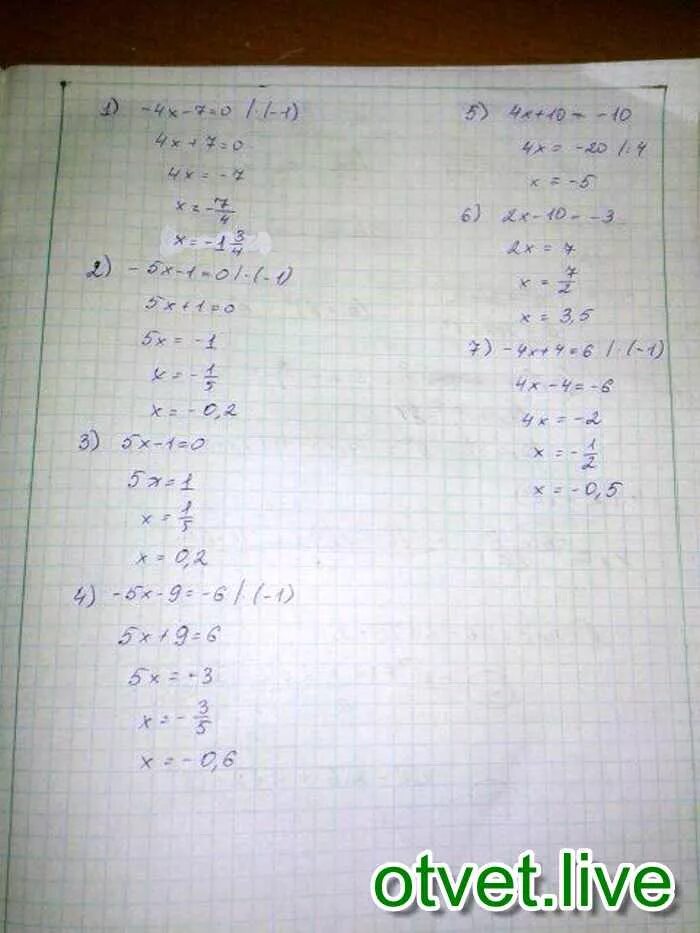 1) -4x-7=0 |·(-1)
4x+7=0
4x = -7
x = -7/4
x = -1 3/4
2) -5x-1=0 |·(-1)
5x+1=0
5x = -1
x = -1/5
x = -0,2
3) 5x-1=0
5x=1
x = 1/5
x = 0,2
4) -5x-9=-6 |·(-1)
5x+9=6
5x = -3
x = -3/5
x = -0,6
5) 4x+10 = -10
4x = -20 |:4
x = -5
6) 2x-10 = -3
2x = 7
x = 7/2
x = 3,5
7) -4x+4=6 |·(-1)
4x-4=-6
4x = -2
x = -1/2
x = -0,5
otvet.live